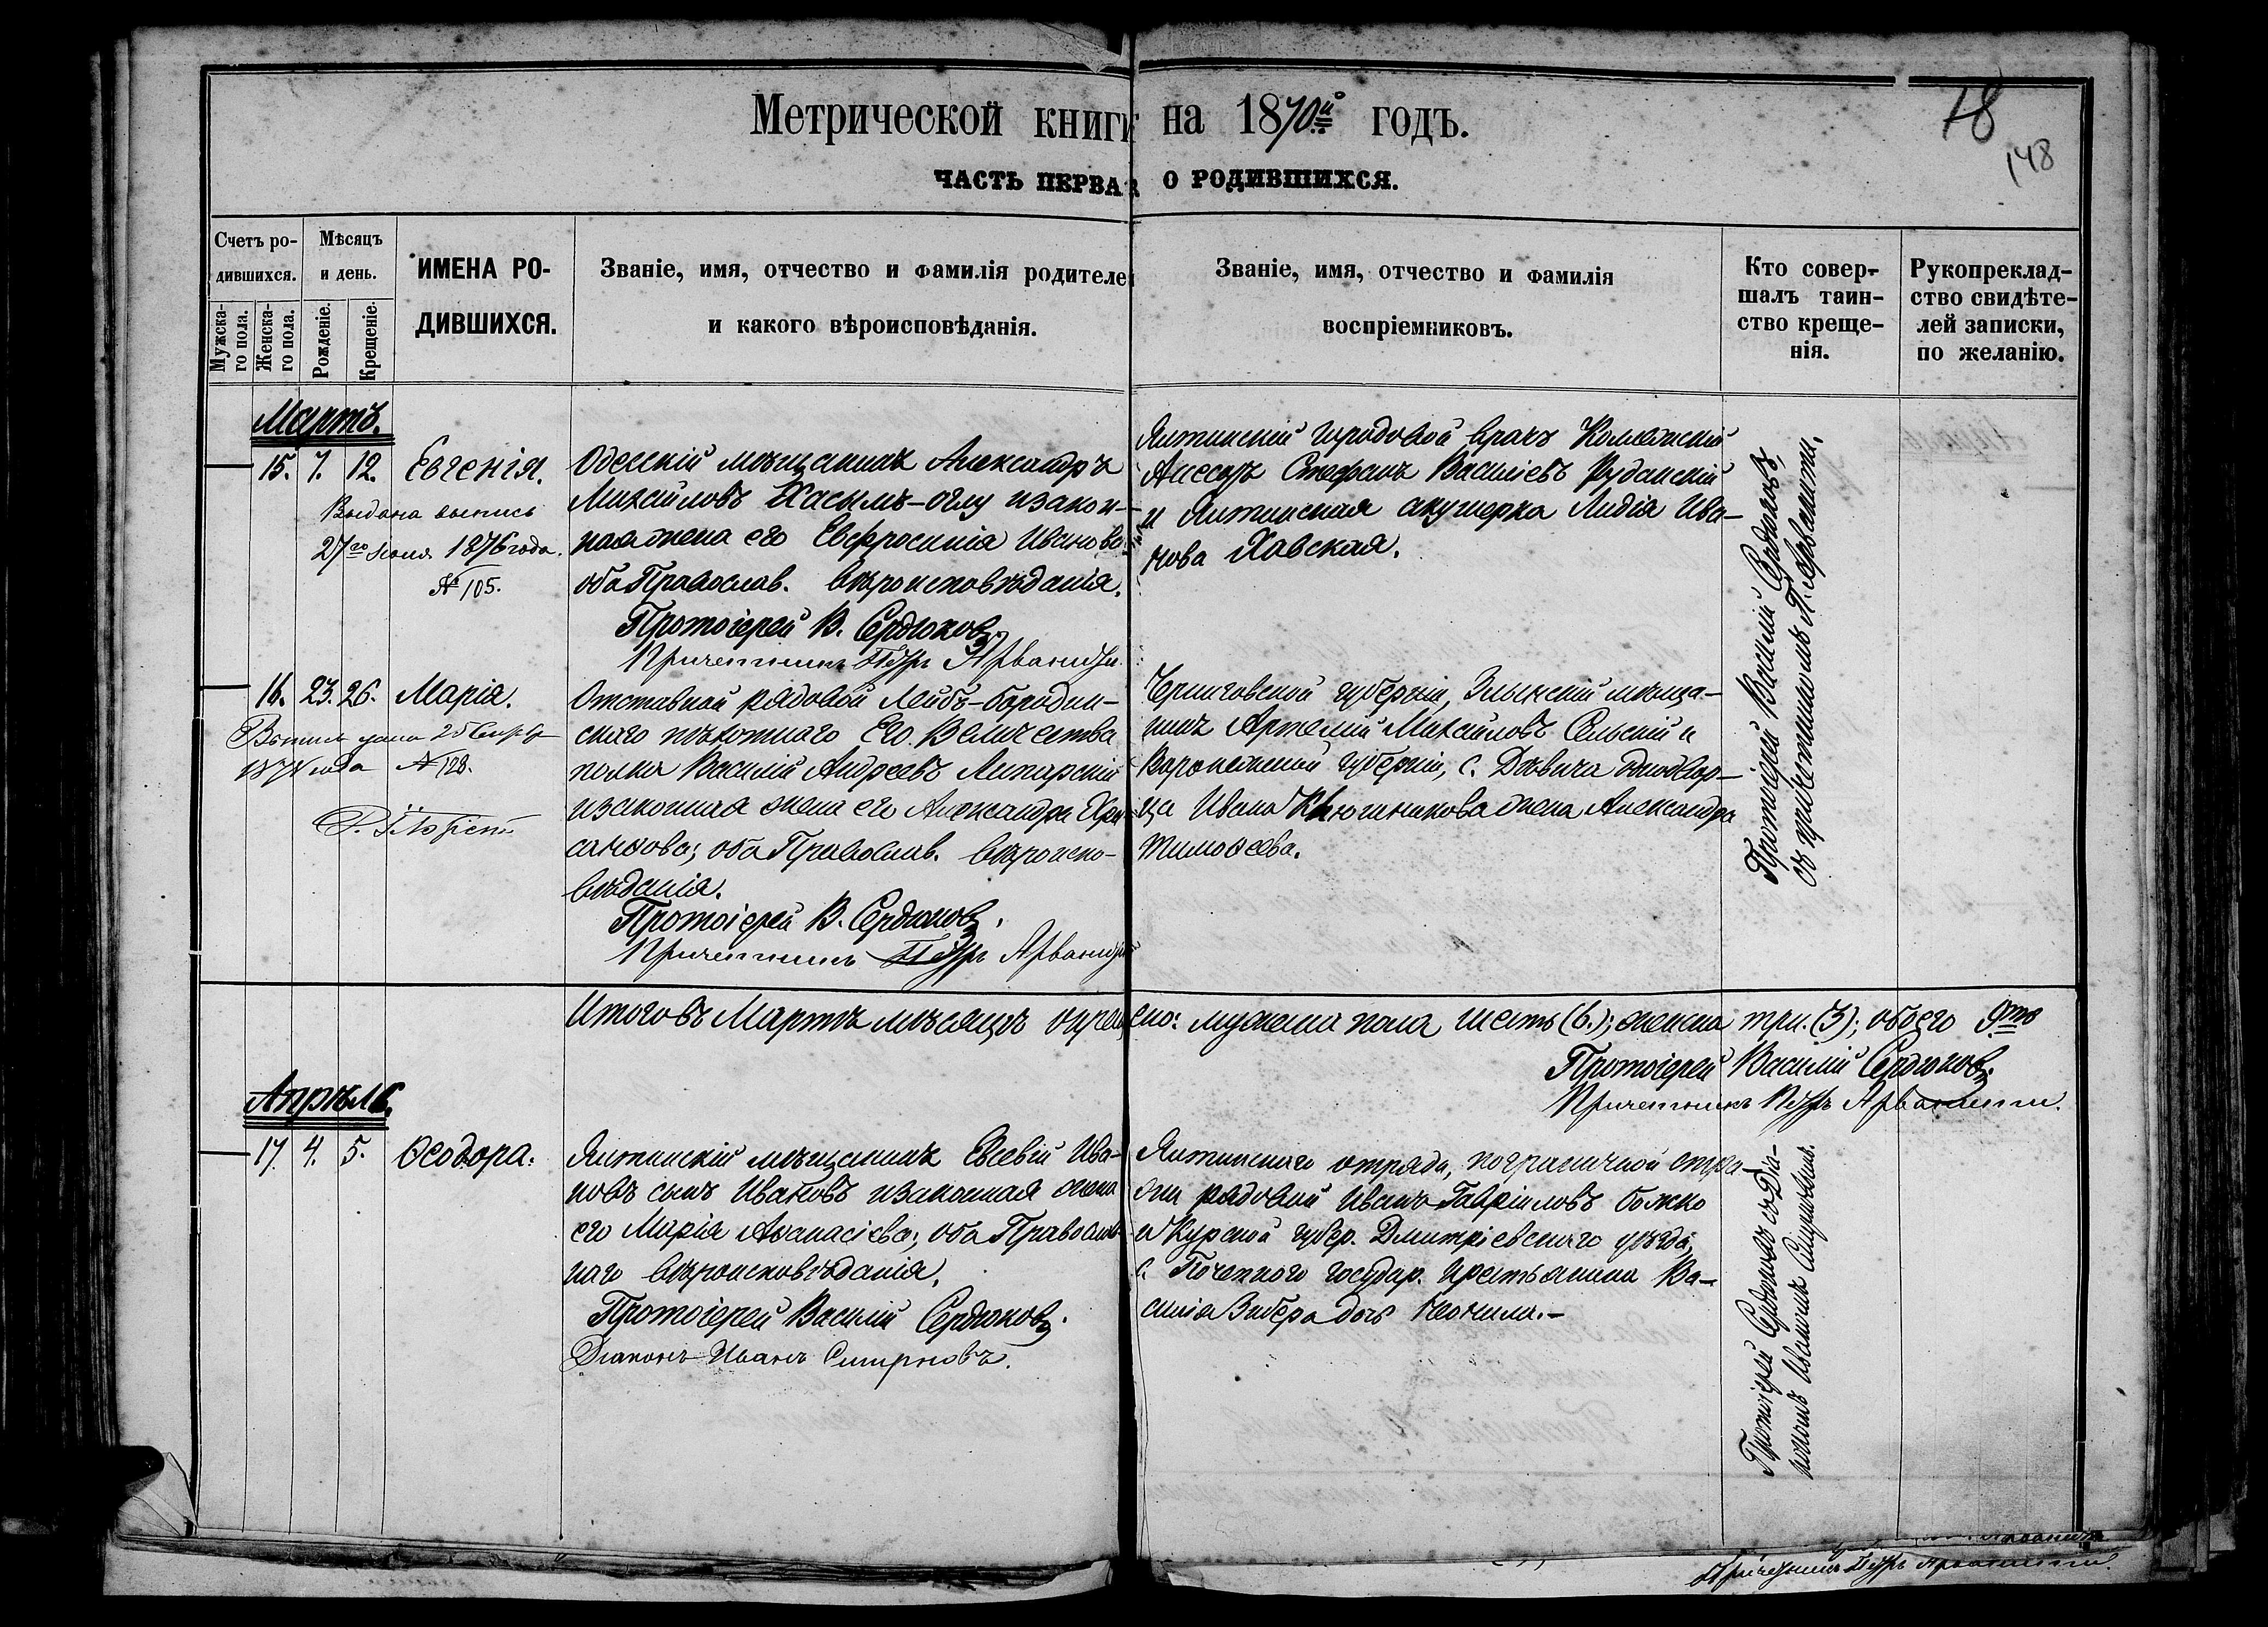 Метрической книги на 1870й годъ.
18
148
ЧАСТЬ ПЕРВАЯ О РОДИВШИХСЯ.
Счетъ ро-
дившихся.
Мужска-
го пола.
Женска-
го пола.
Мѣсяцъ
и день.
Рожденіе.
Крещеніе.
ИМЕНА РО-
ДИВШИХСЯ.
Званіе, имя, отчество и фамилія родителей
и какого вѣроисповѣданія.
Званіе, имя, отчество и фамилія
воспріемниковъ.
Кто совер-
шалъ таин-
ство креще-
нія.
Рукоприклад-
ство свидѣте-
лей записки,
по желанію.
Мартъ.
15. 7. 12. Евгенія.
Выдана выпись
27го Іюня 1876 года.
№ 105.
Одесскій мѣщанинъ Александръ
Михайловъ Хасымъ-оглу и закон-
ная жена его Евфросинія Иванова
оба Православ. вѣроисповѣданія.
Протоіерей В. Сердюковъ
Причетникъ Петръ Арваниди
Ялтинскій городовой врачъ Коллежскій
Асесоръ Стефанъ Василіевъ Руданскій
и Ялтинская акушерка Лидія Ива-
нова Хавская.
Протоіерей Василій Сердюковъ,
съ причетникомъ П. Арванити.
16. 23. 26. Марія.
Выпись дана 25
года № 128.
Отставной рядовой Лейбъ-бородин-
скаго пѣхотнаго Его Величества
полка Василій Андреевъ Липарскій
и законная жена его Александра Хри-
санфова; оба Православ. вѣроиспо-
вѣданія.
Протоіерей В. Сердюковъ.
Причетникъ Петръ Арваниди
Черниговской губерніи, Злынскій мѣща-
нинъ Артемій Михайловъ Сельскій и
Воронежской губерніи, с. Дѣвича однодвор-
ца Ивана Клюшникова жена Александра
Тимоѳеева.
Итого въ Мартѣ мѣсяцѣ окрещено: мужеска пола шесть (6.); женска три. (3); обоего 9ть
Протоіерей Василій Сердюковъ.
Причетникъ Петръ Арванити.
Апрѣль.
17. 4. 5. Ѳеодора.
Ялтинскій мѣщанинъ Евсевій Ива-
новъ сынъ Ивановъ и законная жена
его Марія Аѳанасіева; оба Православ-
наго вѣроисповѣданія.
Протоіерей Василій Сердюковъ.
Діаконъ Иванъ Смирновъ.
Ялтинскаго отряда, пограничной стра-
жи рядовой Иванъ Гавріиловъ Божко
и Курской губер. Дмитріевскаго уѣзда,
с. Поченного государ. крестьянина Ва-
силія Зибера дочь Неонила.-
Протоіерей Сердюковъ съ Діа-
кономъ Иваномъ Смирновымъ.
Причетникъ Петръ Арванити.